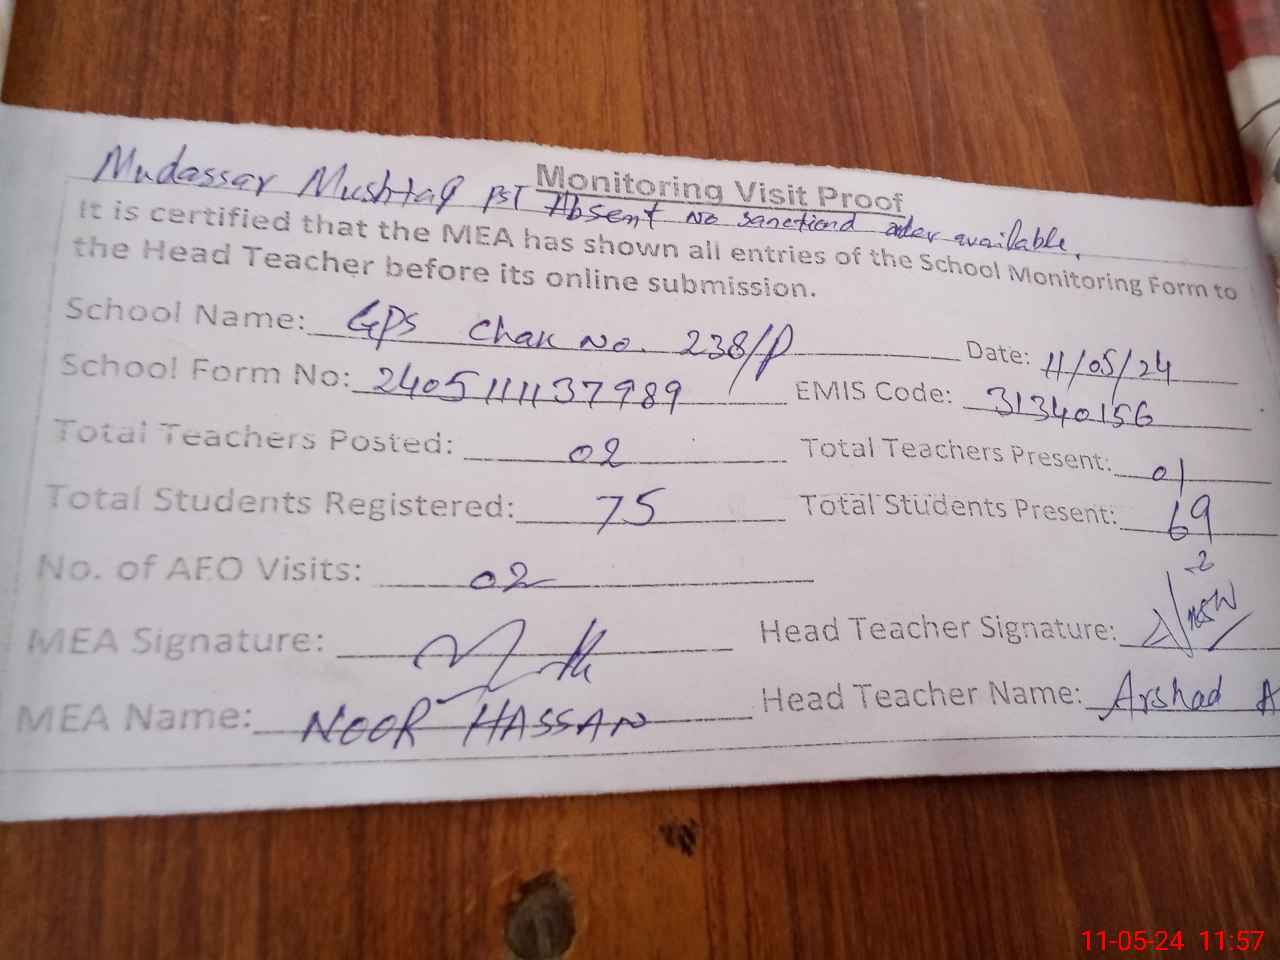 Monitoring Visit Proof
Mudassar Mushtaq PST Absent No sanctiond order available,
It is certified that the MEA has shown all entries of the School Monitoring Form to
the Head Teacher before its online submission.
School Name: GPS Chak No. 238/P Date: 11/05/24
School Form No: 2405111137989 EMIS Code: 31340156
Total Teachers Posted: 02 Total Teachers Present: 01
Total Students Registered: 75 Total Students Present: 69
No. of AEO Visits: 02
MEA Signature: Head Teacher Signature:
MEA Name: NOOR HASSAN Head Teacher Name: Arshad A
11-05-24 11:57